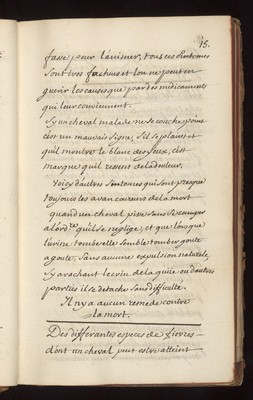 15.
fasse pour l'animer, tous ces sintomes
sont tres facheux et l'on ne peut en
guerir les causes que par des medicaments
qui leur conviennent.
Sy un cheval malade ne se couche point
c'est un mauvais signe, s'il se plaint et
qu'il montre le blanc des yeux, c'est
marque qu'il ressent de la douleur.
voicy d'autres sintomes qui sont presque
toujours les avan coureurs de la mort
quand un cheval pisse sans se camper
a l'ordre qu'il se neglige, et que lorsque
l'urine tombe elle semble tomber goute
a goute, sans aucune expulsion naturelle,
sy arachant le crin de la queüe ou d'autres
parties il se detache sans difficulté.
Il n'y a aucun remede contre
la mort.
Des differantes especes de fievres
dont un cheval peut estre atteint